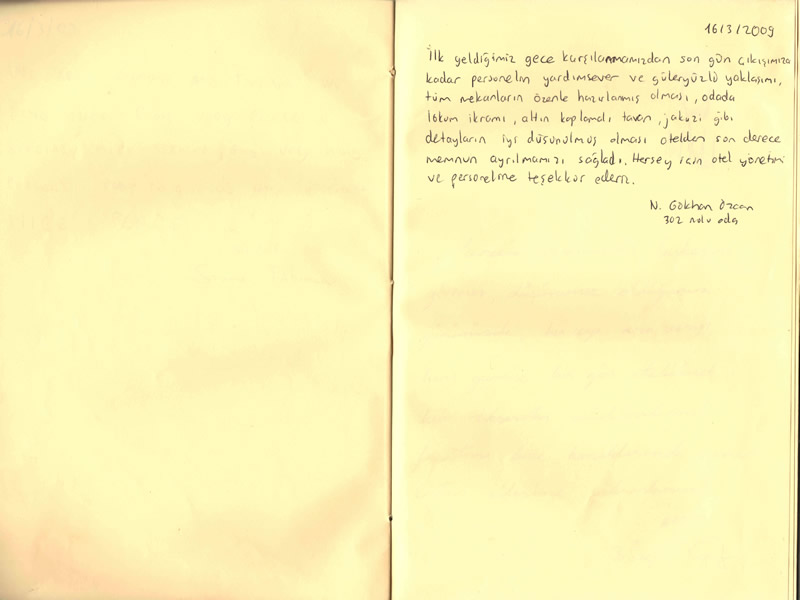 16/3/2009
İlk geldiğimiz gece karşılanmamızdan son gün çıkışımıza
kadar personelin yardımsever ve güleryüzlü yaklaşımı,
tüm mekanların özenle hazırlanmış olması, odada
lokum ikramı, altın kaplamalı tavan, jakuzi gibi
detayların iyi düşünülmüş olması otelden son derece
memnun ayrılmamızı sağladı. Herşey için otel yönetimi
ve personeline teşekkür ederiz.
N. Gökhan Özcan
302 nolu oda